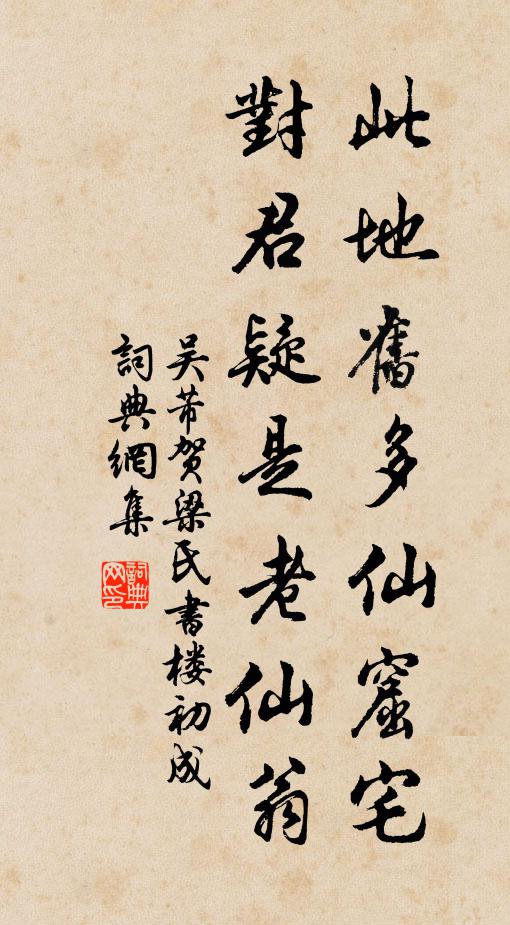 此地舊多仙窟宅
對君疑是老仙翁
吴芾贺梁氏書楼初成
詞典網集
詞典
网印